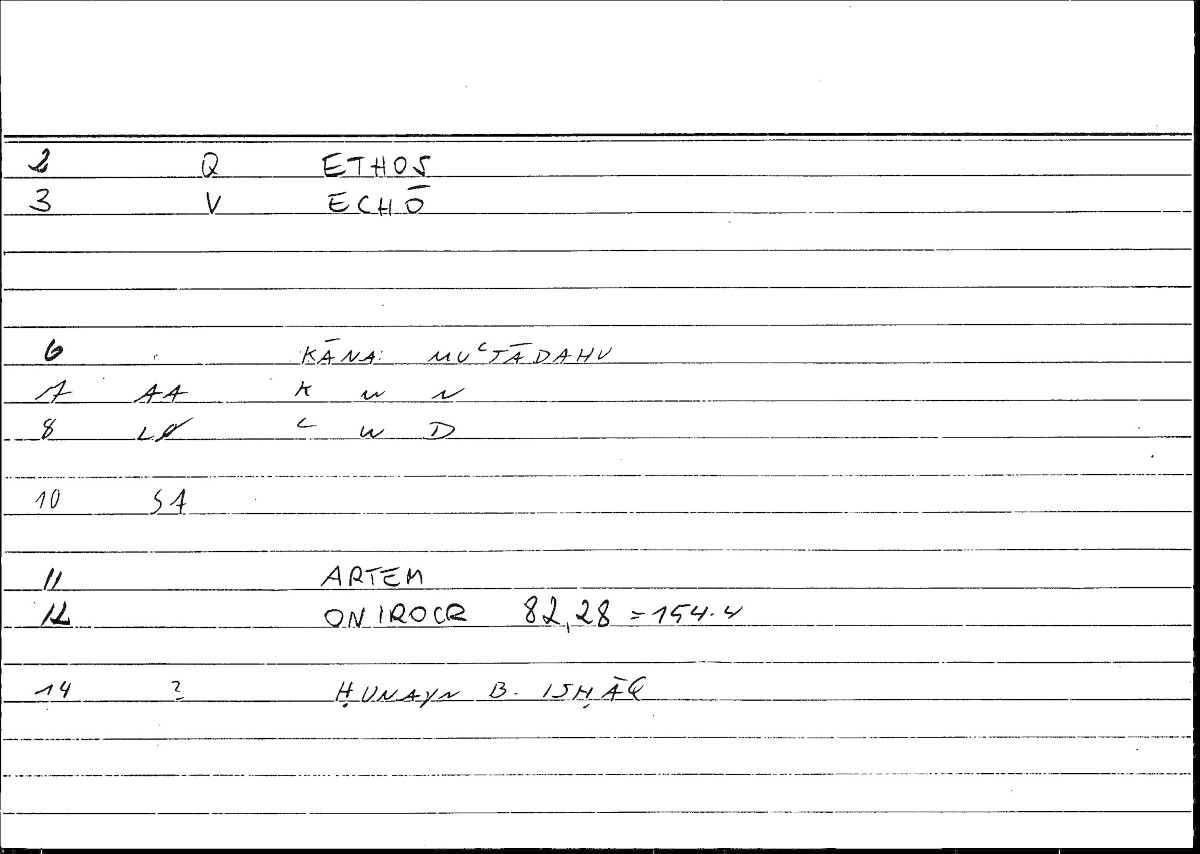 2 Q ETHOS
3 V ECHŌ
6 KĀNA: MUʿTĀDAHU
7 AA K W N
8 LØ ʿ W D
10 SA
11 ARTEM
12 ONIROCR 82,28 = 154.4
14 ? ḤUNAYN B. ISḤĀQ